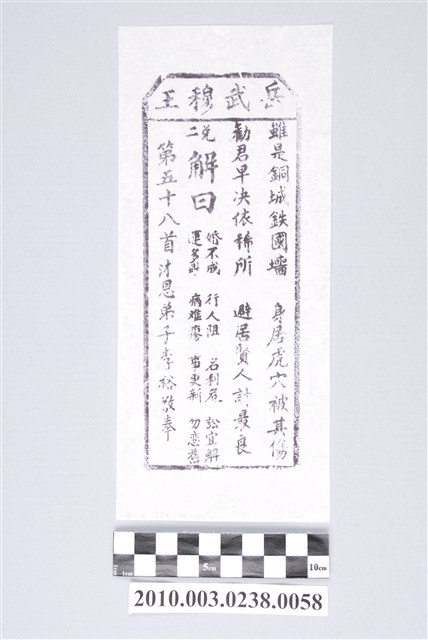 岳武穆王
雖是銅城鉄國墻 身居虎穴被其傷
勸君早决依稀所 避居賢人計最良
兌二 解曰 婚不成 行人阻 名利危 訟宜解
運多 病难痊 事更新 勿恋舊
第五十八首 沐恩弟子李裕敬奉
1cm 5cm 10cm
2010.003.0238.0058